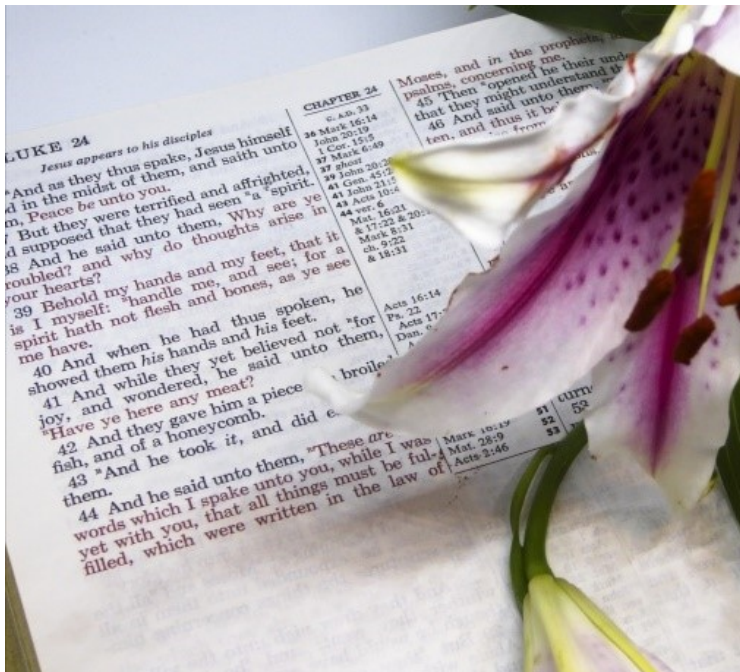 LUKE 24
Jesus appears to his disciples
And as they thus spake, Jesus himself
in the midst of them, and saith unto
Peace be unto you.
But they were terrified and affrighted,
supposed that they had seen a spirit.
38 And he said unto them, Why are ye
troubled? and why do thoughts arise in
your hearts?
39 Behold my hands and my feet, that it
is I myself: handle me, and see; for a
spirit hath not flesh and bones, as ye see
me have.
40 And when he had thus spoken, he
showed them his hands and his feet.
41 And while they yet believed not for
joy, and wondered, he said unto them,
Have ye here any meat?
42 And they gave him a piece broiled
fish, and of a honeycomb.
43 And he took it, and did
them.
44 And he said unto them, These are
words which I spake unto you, while I was
yet with you, that all things must be ful-
filled, which were written in the law of
CHAPTER 24
C. A.D. 33
36 Mark 16:14
John 20:19
1 Cor. 15:5
37 Mark 6:49
37 ghost
39 John
41 Gen.
41 John
43 Acts
44 ver. 6
Mat. 16:21
& 17:22 &
Mark 8:31
ch. 9:22
& 18:31
Acts 16:14
Ps. 22
Acts
Dan.
51
52
53
Mat. 28:9
Acts 2:46
Moses, and in the prophets,
psalms, concerning me.
45 Then opened he their
that they might understand
46 And said unto them,
and thus it
from